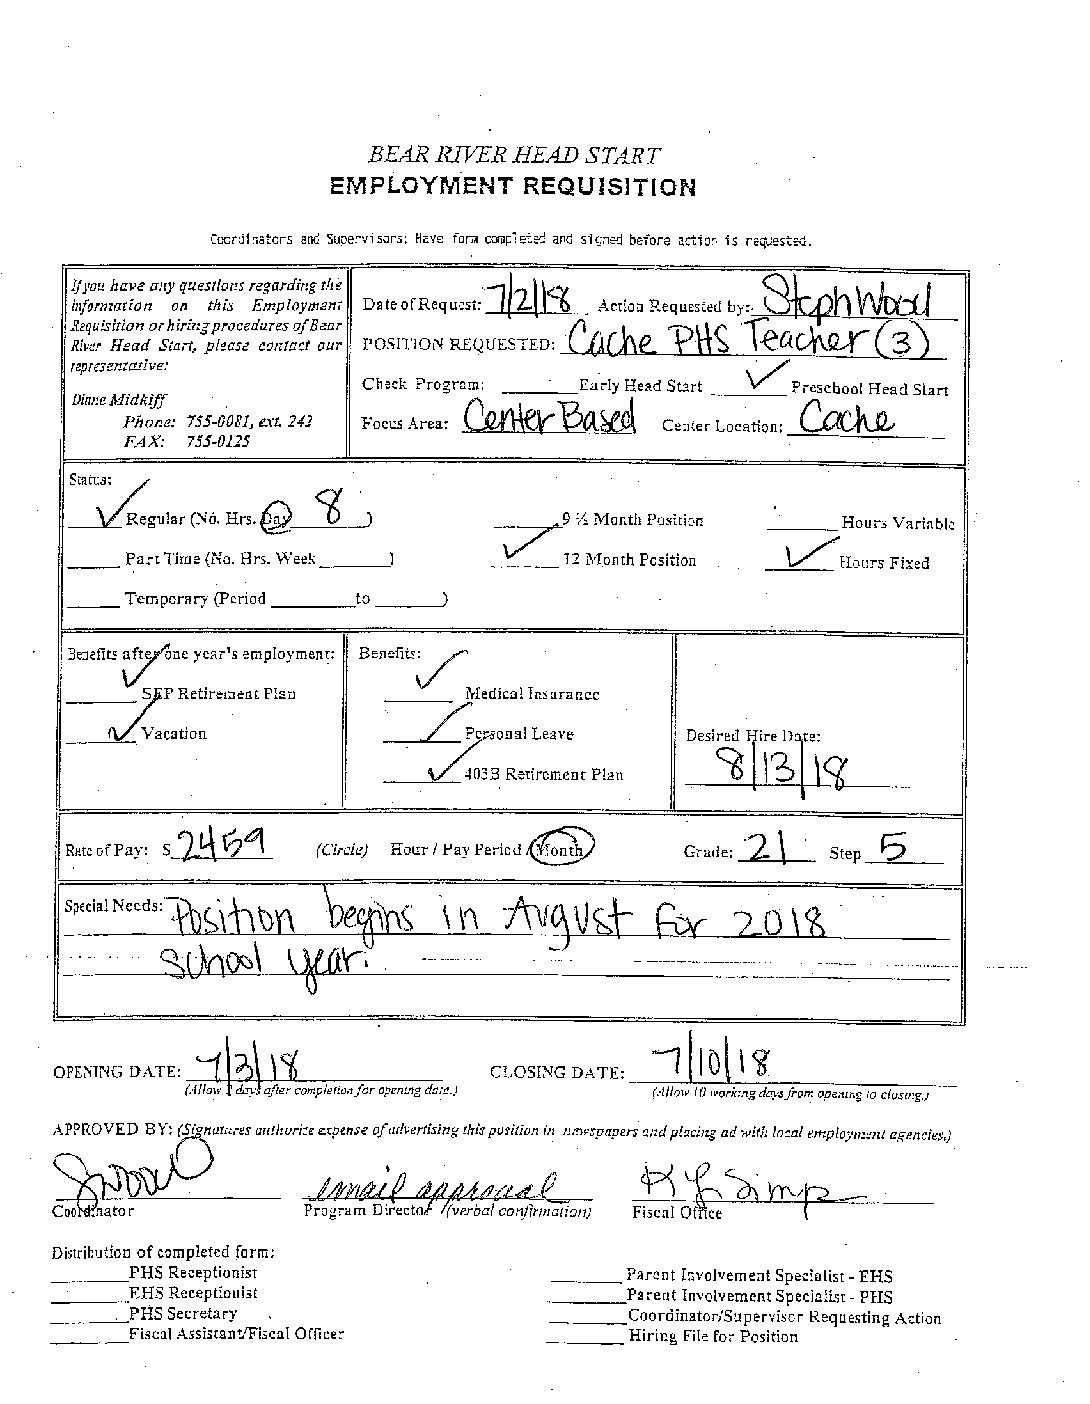 BEAR RIVER HEAD START
EMPLOYMENT REQUISITION
Coordinators and Supervisors: Have form completed and signed before action is requested.
If you have any questions regarding the
information on this Employment
Requisition or hiring procedures of Bear
River Head Start, please contact our
representative:
Diane Midkiff
Phone: 755-0081, ext. 242
FAX: 755-0125
Date of Request: 7/2/18 Action Requested by: Steph Wood
POSITION REQUESTED: Cache PHS Teacher (3)
Check Program: ______ Early Head Start ✓ Preschool Head Start
Focus Area: Center Based Center Location: Cache
Status:
✓ Regular (No. Hrs. Day 8 )
______ 9 ½ Month Position
______ Hours Variable
______ Part Time (No. Hrs. Week ______ )
✓ 12 Month Position
✓ Hours Fixed
______ Temporary (Period ______ to ______ )
Benefits after one year's employment:
✓ SEP Retirement Plan
✓ Vacation
Benefits:
✓ Medical Insurance
✓ Personal Leave
✓ 403B Retirement Plan
Desired Hire Date:
8/13/18
Rate of Pay: $ 2459 (Circle) Hour / Pay Period / Month Grade: 21 Step 5
Special Needs: Position begins in August for 2018
school year.
OPENING DATE: 7/3/18 CLOSING DATE: 7/10/18
(Allow 2 days after completion for opening date.) (Allow 10 working days from opening to closing.)
APPROVED BY: (Signatures authorize expense of advertising this position in newspapers and placing ad with local employment agencies.)
SWood email approval K Simp
Coordinator Program Director (verbal confirmation) Fiscal Office
Distribution of completed form:
______ PHS Receptionist
______ EHS Receptionist
______ PHS Secretary
______ Fiscal Assistant/Fiscal Officer
______ Parent Involvement Specialist - EHS
______ Parent Involvement Specialist - PHS
______ Coordinator/Supervisor Requesting Action
______ Hiring File for Position